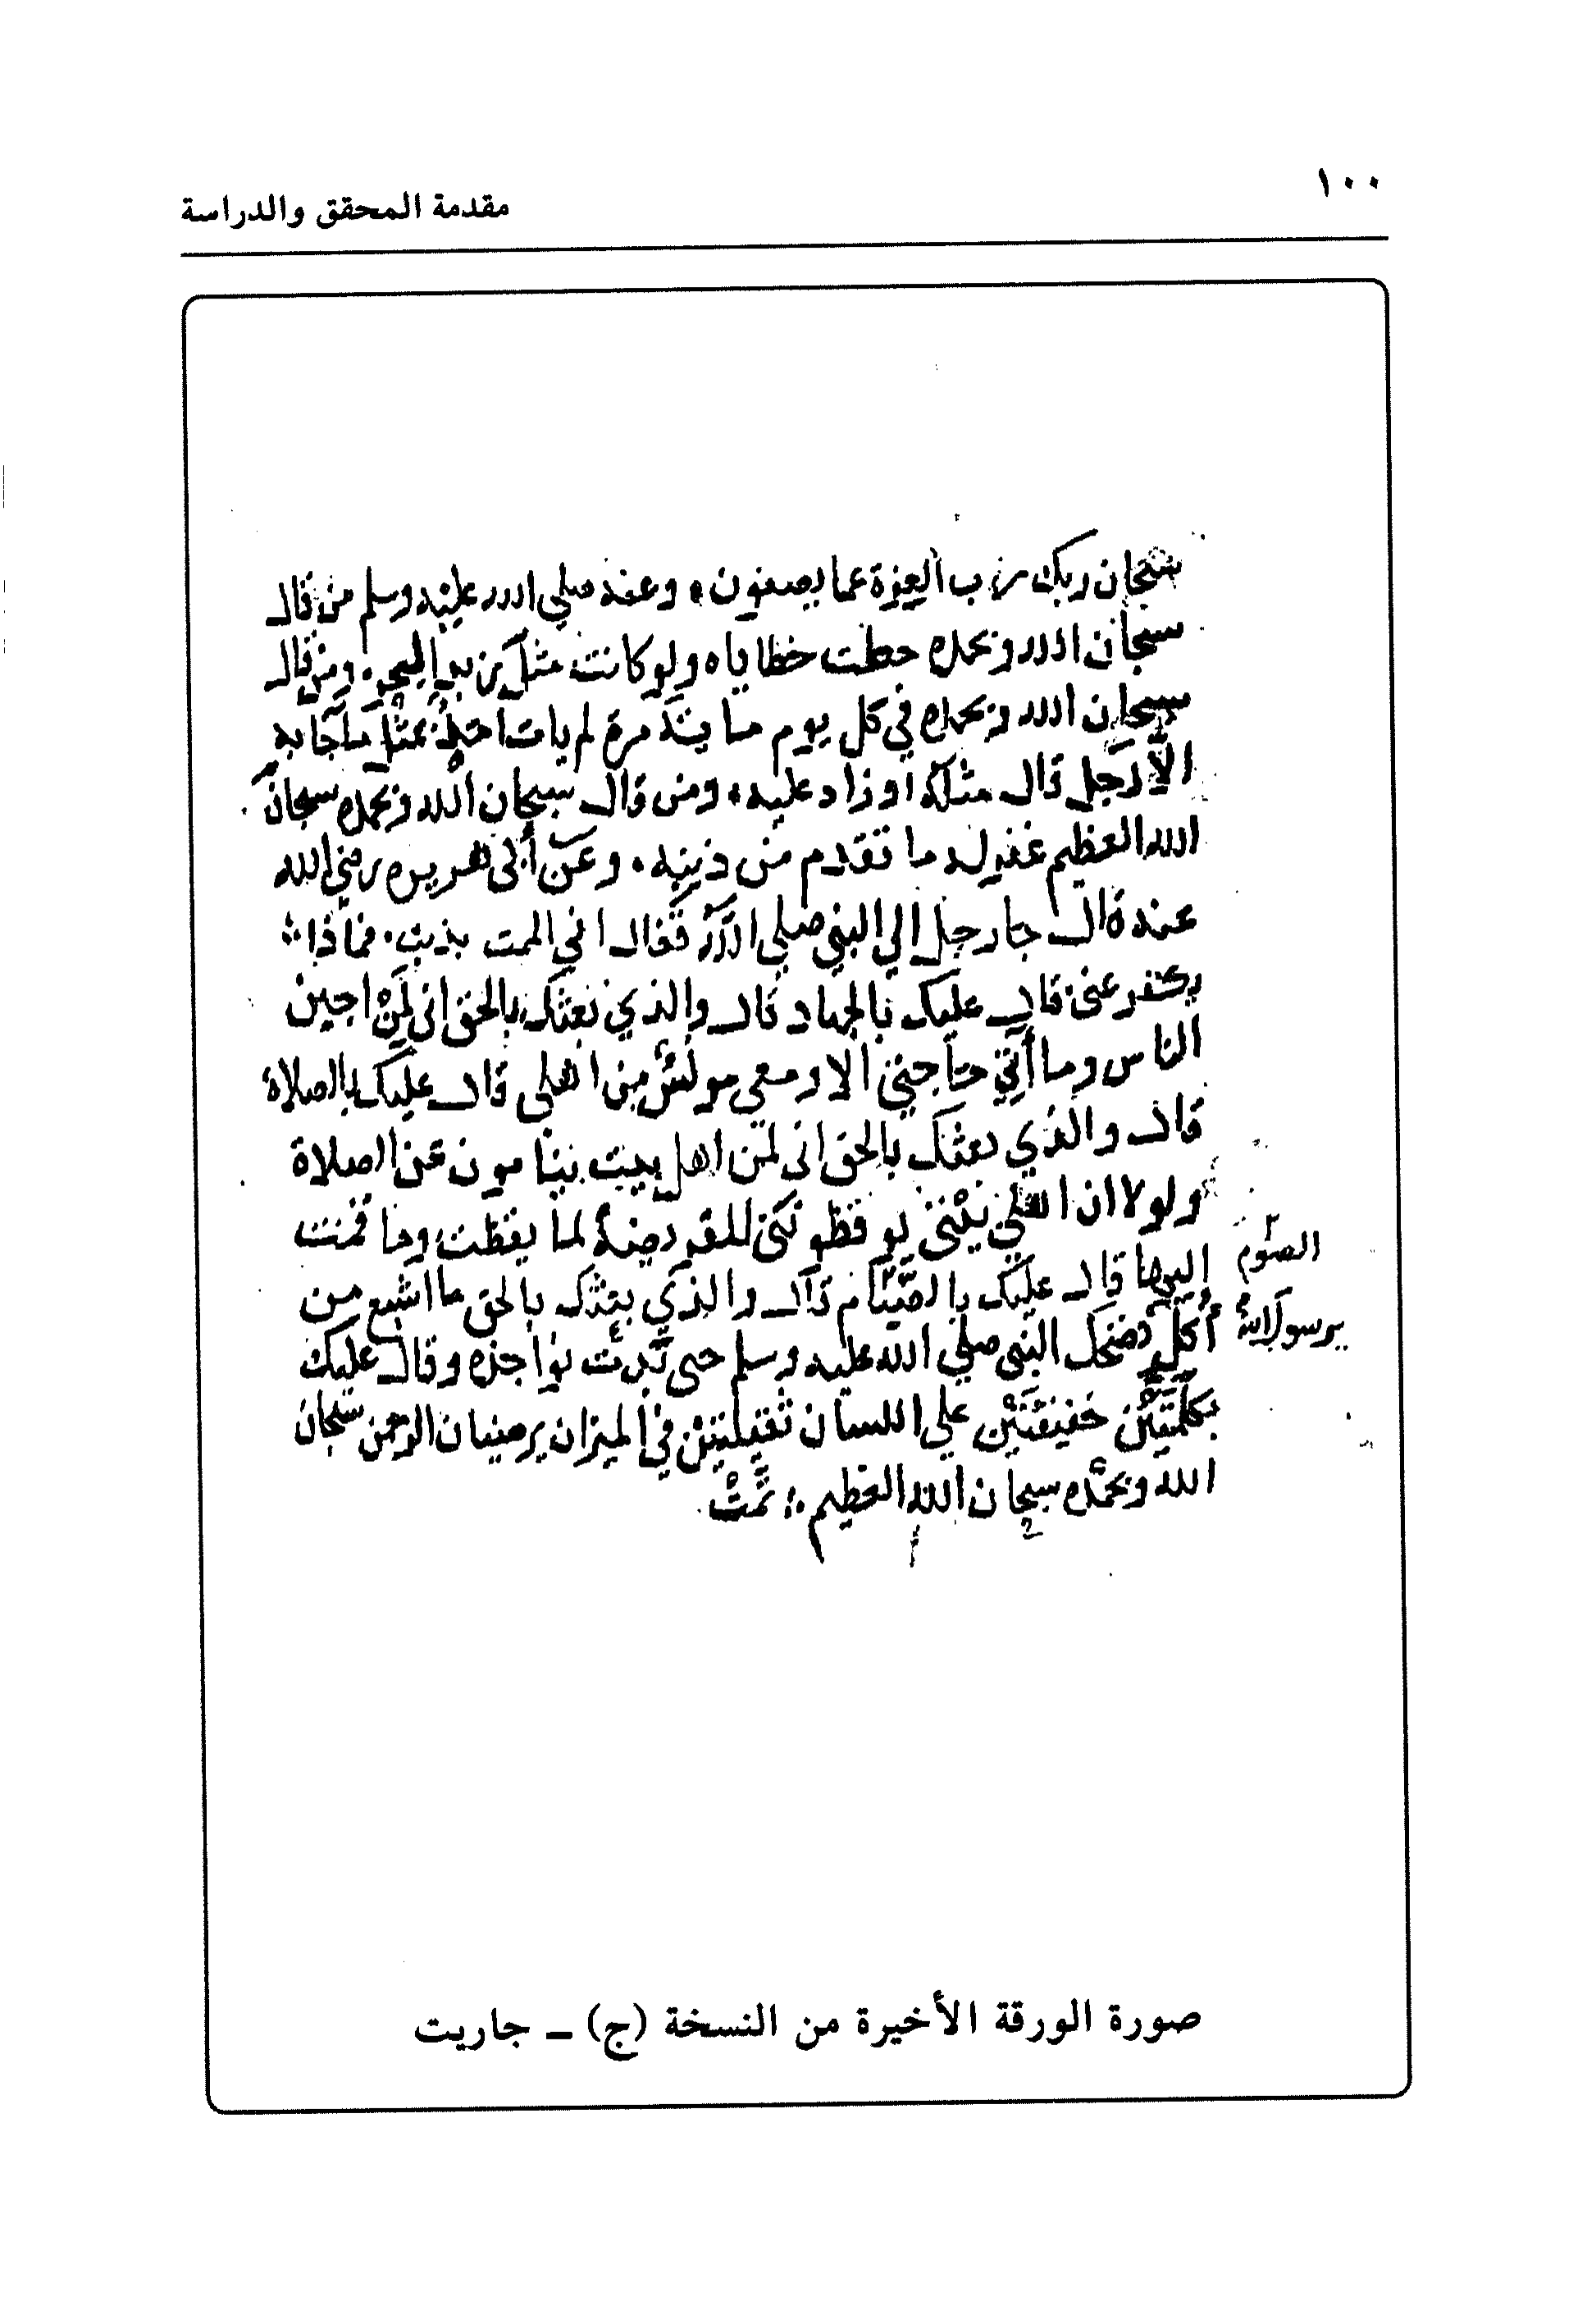 ١٠٠
مقدمة المحقق والدراسة
سبحان ربك رب العزة عما يصفون، وعنه صلى الله عليه وسلم من قال
سبحان الله وبحمده حطت خطاياه ولو كانت مثل زبد البحر. ومن قال
سبحان الله وبحمده في كل يوم مرة لم يات احد بمثل ما جا به
الا رجل قال مثله او زاد عليه، ومن قال سبحان الله وبحمده سبحان
الله العظيم غفر له ما تقدم من ذنبه. وعن أبي هريره رضي الله
عنه قال جا رجل الي النبي صلى الله فقال اني الممت بذنب. فماذا
يكفر عني قال عليك بالجهاد قال والذي بعثك بالحق اني لمن اجبن
الناس وما أتي حاجتي الا ومعي مونس من اهلي قال عليك بالصلاة
قال والذي بعثك بالحق اني لمن اهل بيت ينامون عن الصلاة
ولولا ان اهلي يوقظونني للفريضة لما يقظت وما قمت
إليها قال عليك بالصيام قال والذي بعثك بالحق ما اشبع من
الصوم
أكل فضحك النبي صلي الله عليه وسلم حتى بدت نواجذه وقال عليك
يرسول الله
بكلمتين خفيفتين علي اللسان ثقيلتين في الميزان يرضيان الرحمن سبحان
الله وبحمده سبحان الله العظيم ؞ تمت
صورة الورقة الأخيرة من النسخة (ج) ــ جاريت